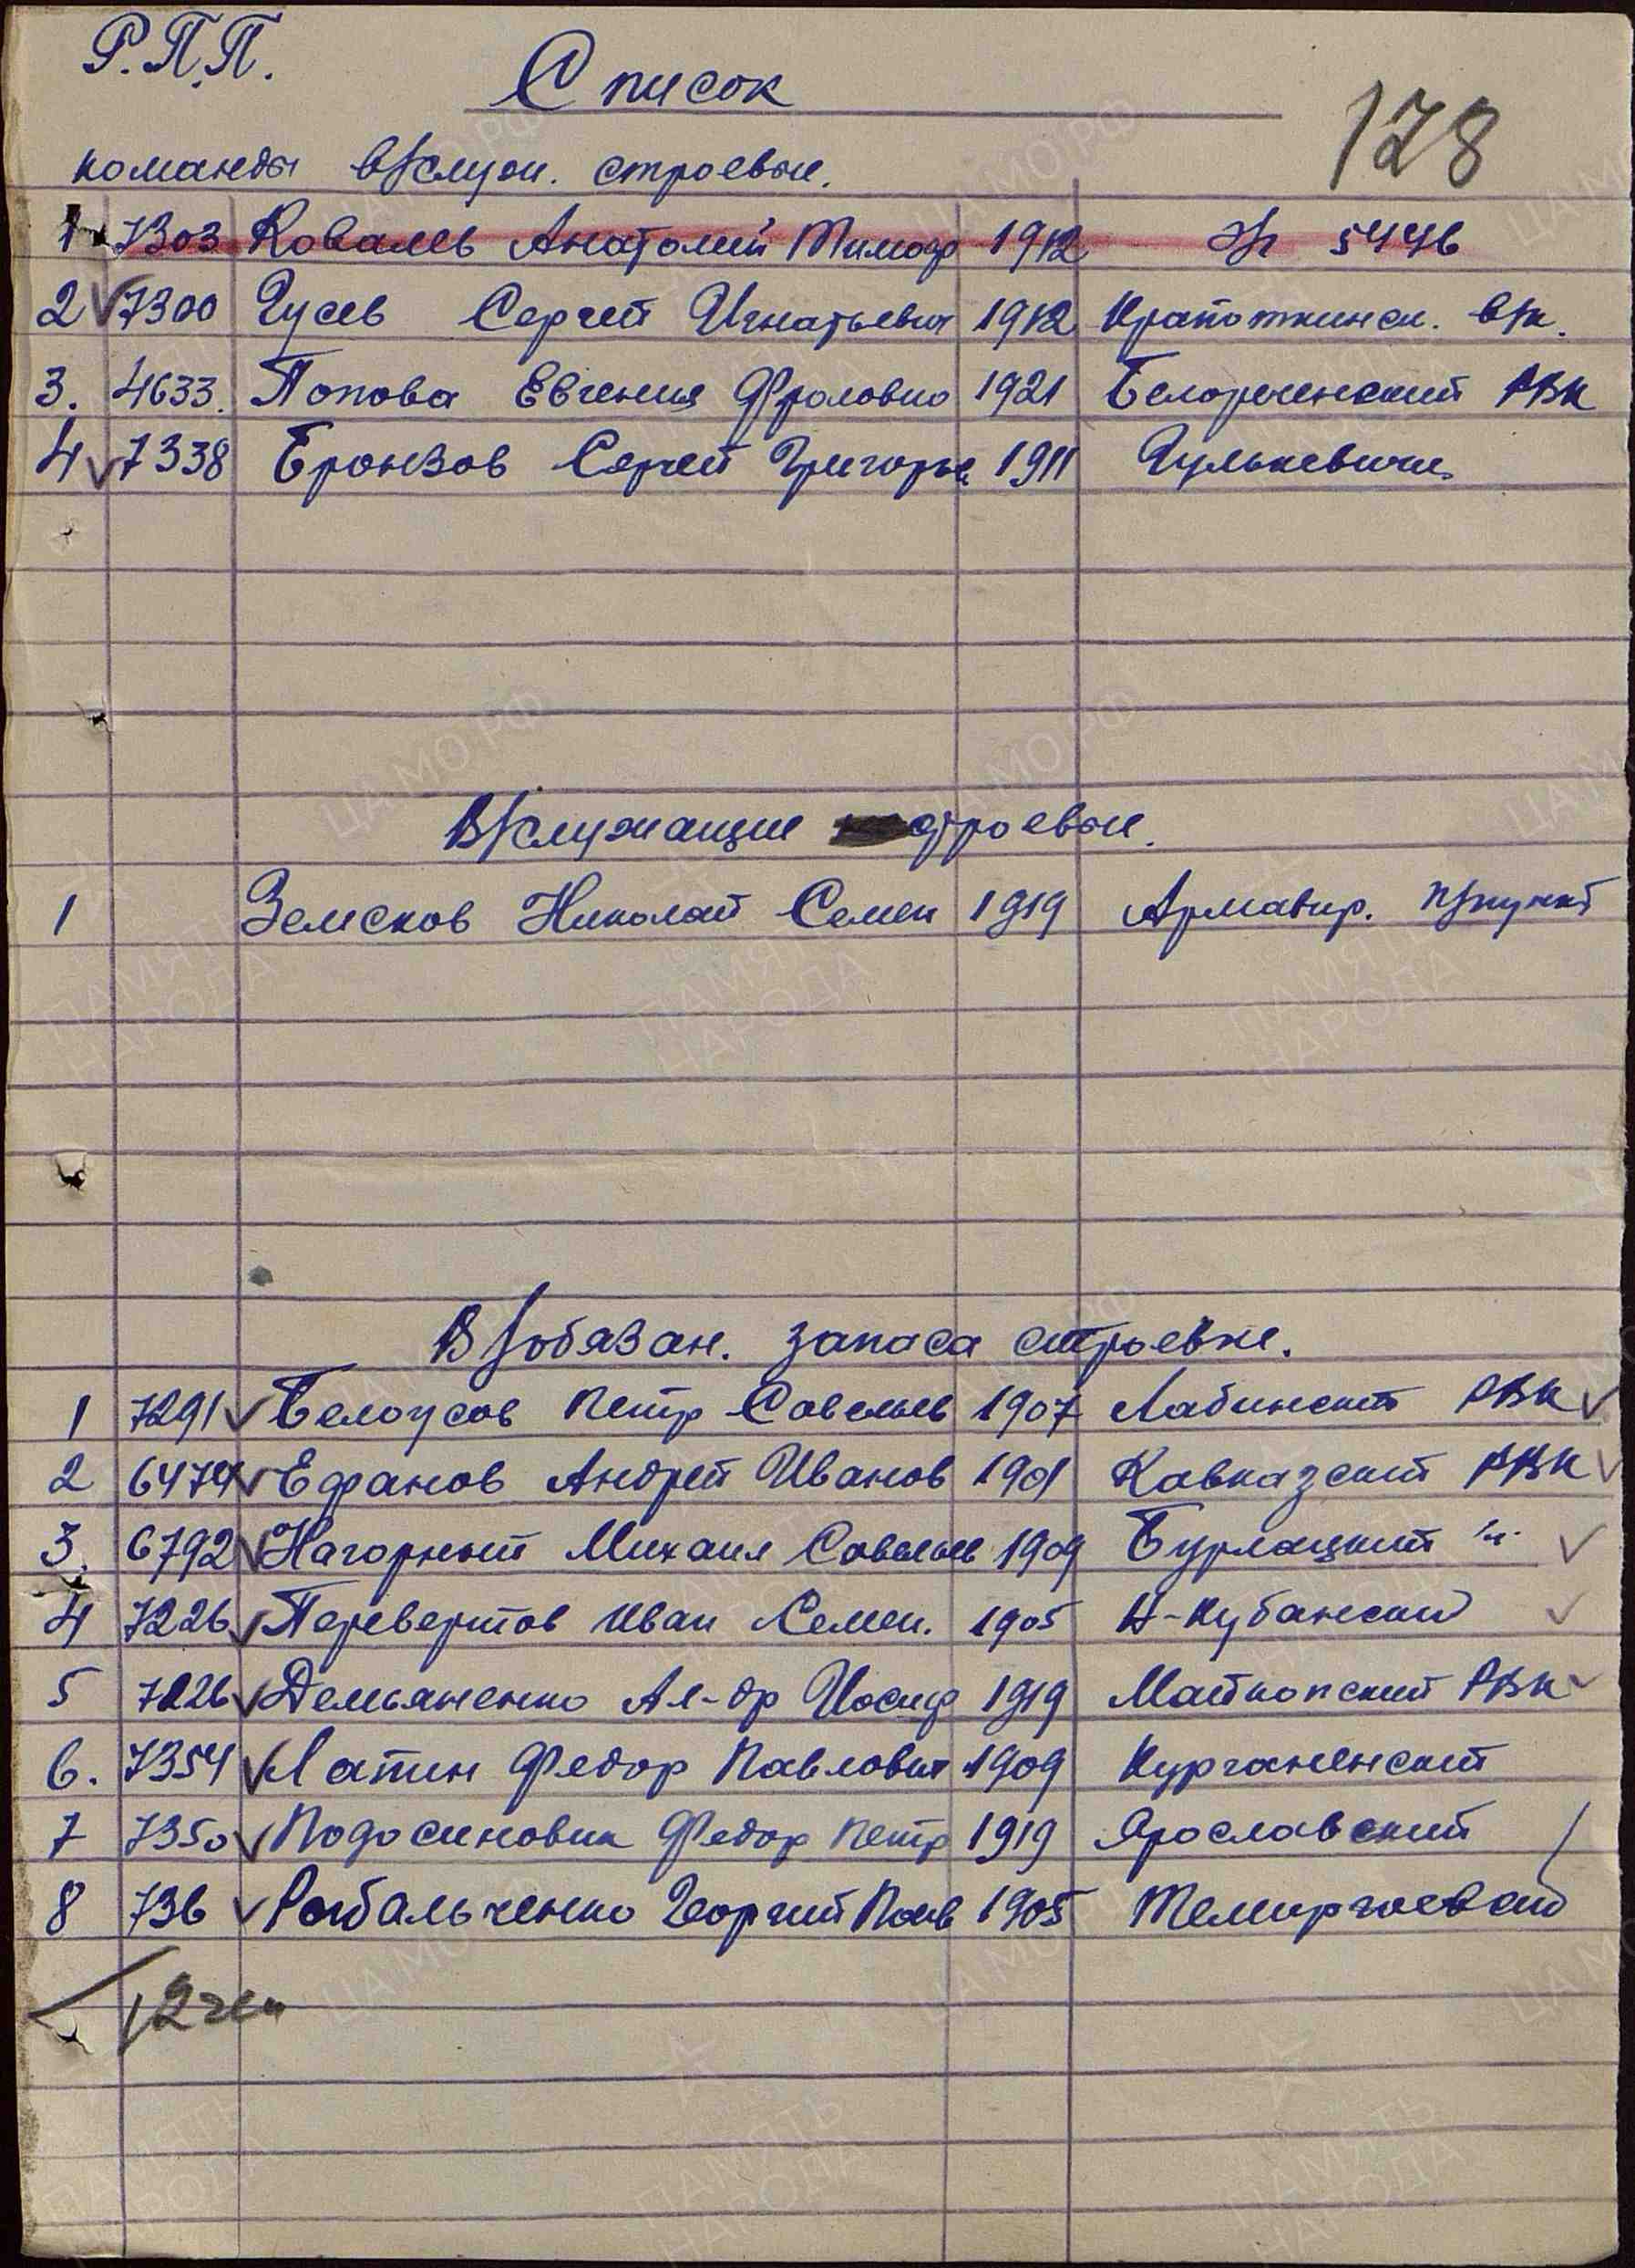 Р.П.П.
Список
178
команды в/служ. строевые.
1 7303 Ковалев Анатолий Тимоф 1912 5446
2 7300 Гусев Сергей Игнатьевич 1912 Крапоткинск. в/к.
3. 4633. Попова Евгения Фроловна 1921 Белореченский РВК
4 7338 Бронзов Сергей Григорье 1911 Гулькевичи
В/служащие строевые.
1 Земсков Николай Семен 1919 Армавир. п/пункт
В/обязан. запаса строевые.
1 7291 Белоусов Петр Савельев 1907 Лабинский РВК
2 Ефанов Андрей Иванов 1901 Кавказский РВК
3. 6792 Нагорный Михаил Савельев 1909 Бурлацкий -"-
4 7226 Перевертов Иван Семен. 1905 Н-Кубанский
5 Демьяненко Ал-др Иосиф 1919 Майкопский РВК
6. 7354 Лапин Федор Павлович 1909 Курганенский
7 7350 Подосиновик Федор Петр 1919 Ярославский
8 736 Рыбальченко Георгий Пав 1905 Темиргоевский
12 чел